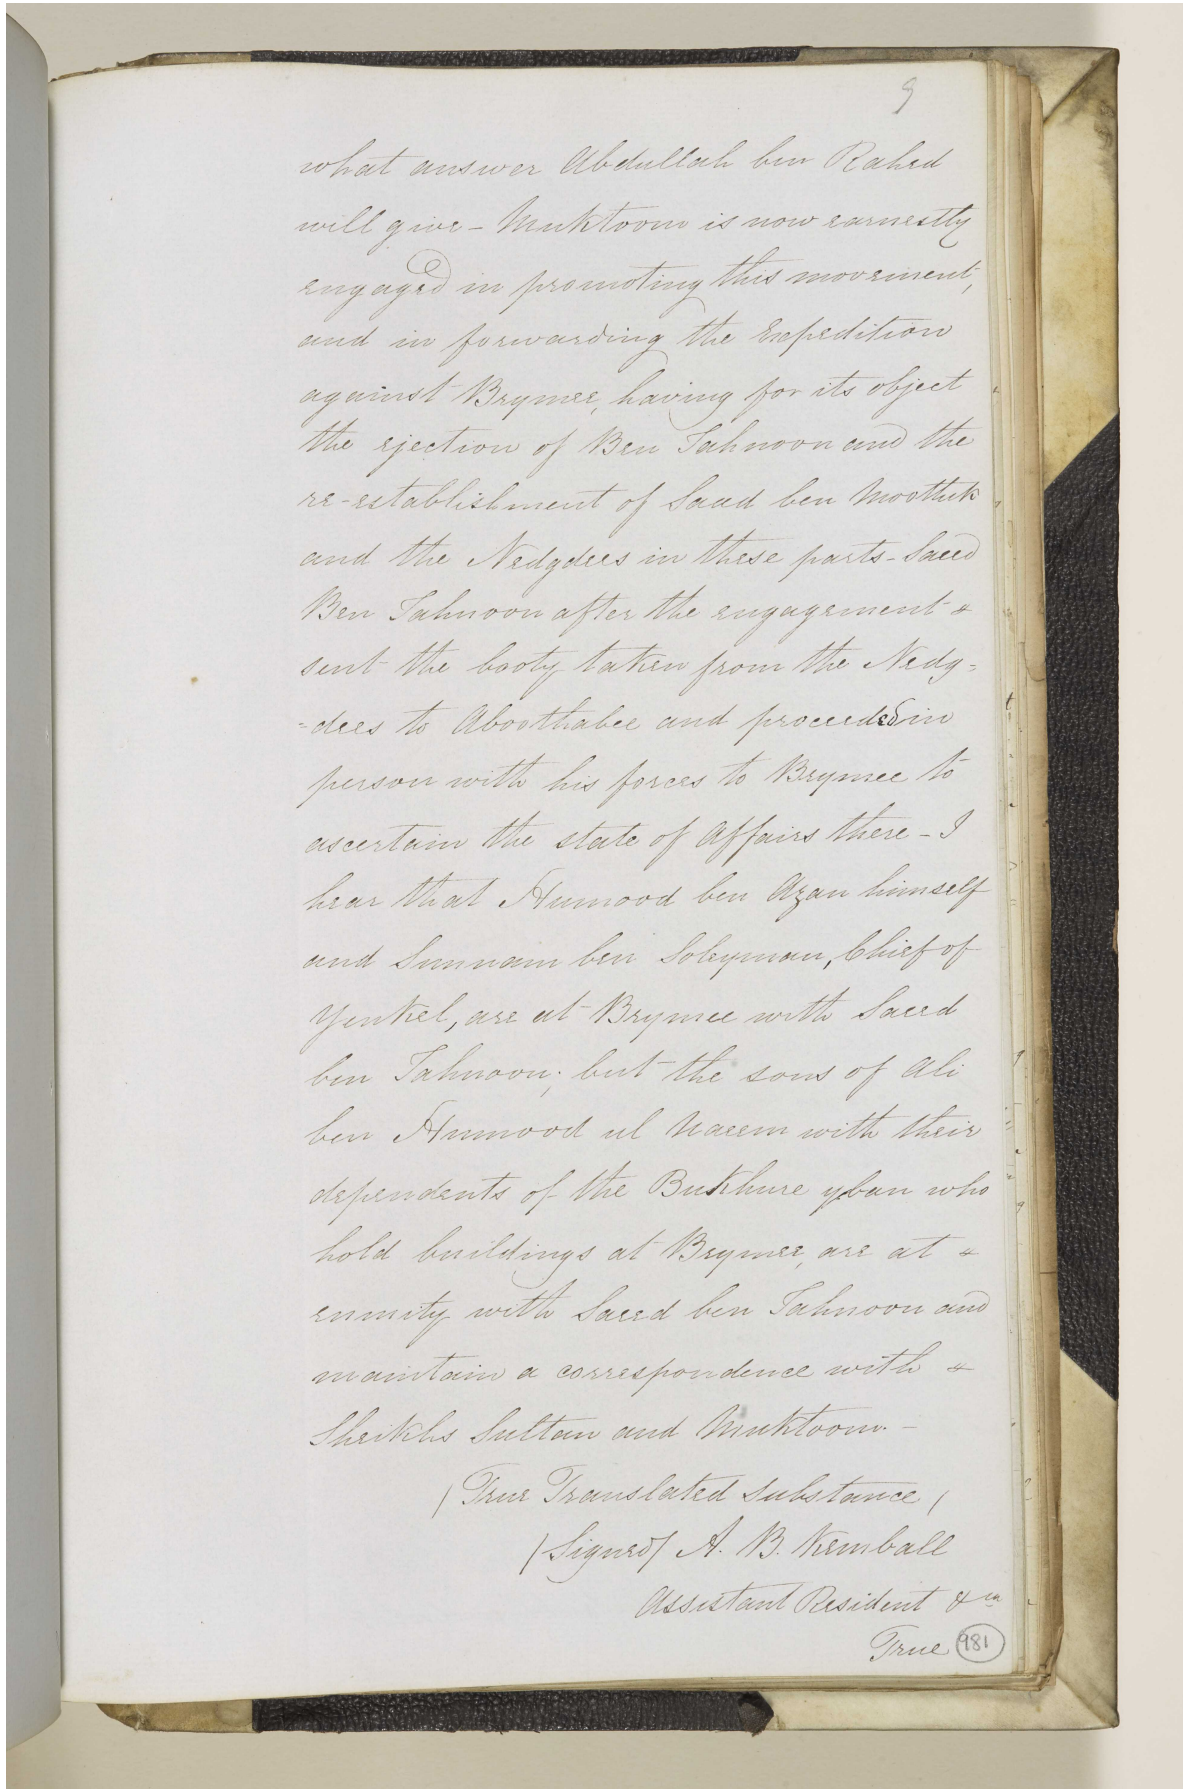 9
what answer Abdullah ben Rahed
will give – Muktoom is now earnestly
engaged in promoting this movement,
and in forwarding the Expedition
against Brymee, having for its object
the ejection of Ben Tahnoon and the
re-establishment of Saad ben Moothuk
and the Nedgdees in these parts – Saeed
Ben Tahnoon after the engagement
sent the booty taken from the Nedg=
=dees to Aboothabee and proceeded in
person with his forces to Brymee to
ascertain the state of Affairs there – I
hear that Humood ben Azan himself
and Sunnain ben Soleyman, Chief of
Yenkel, are at Brymee with Saeed
ben Tahnoon; but the sons of Ali
ben Humood ul Naeem with their
dependents of the Bukhure yban who
hold buildings at Brymee, are at
enmity with Saeed ben Tahnoon and
maintain a correspondence with
Sheikhs Sultan and Muktoom. –
(True Translated substance)
(Signed) A. B. Kemball
Assistant Resident &ca
True
981